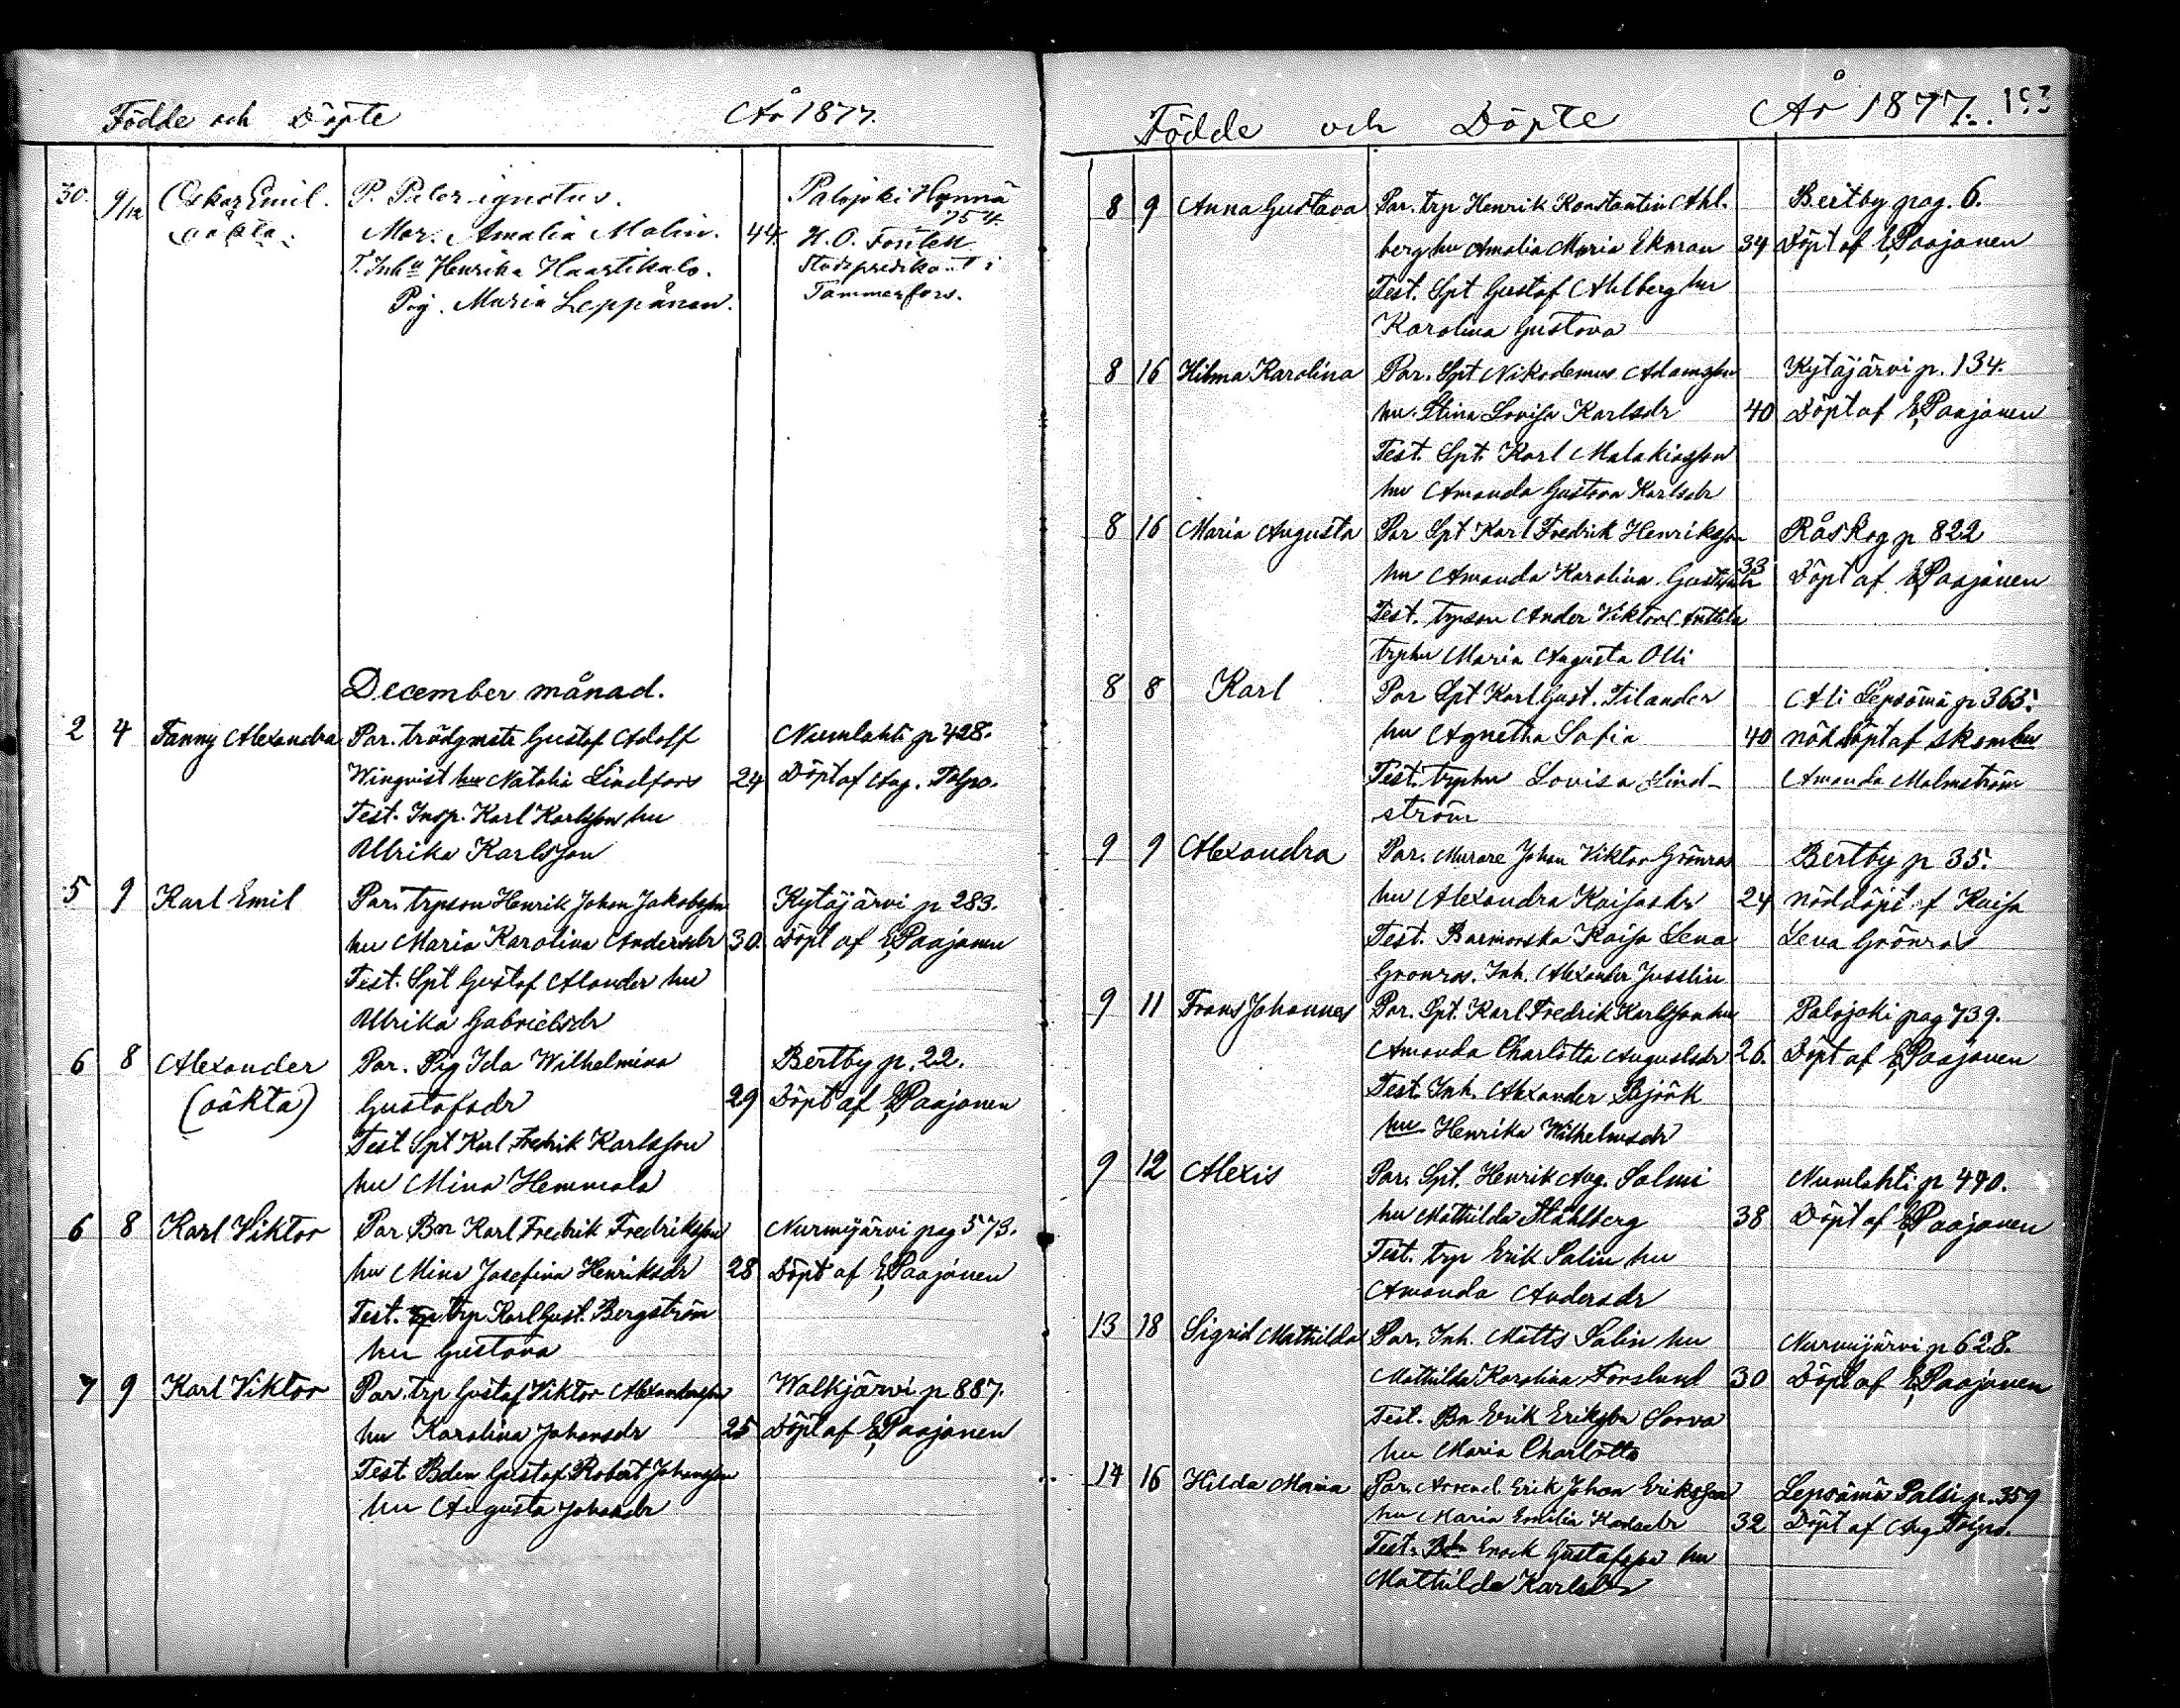 Födde och Döpte År 1877.
30. 9/12 Oskar Emil. P. Pater ignotus. Palojoki Hynnä
oäkta. Mor. Amalia Malin. 44. 754.
T. Inh Henrika Haartikalo. H. O. Fontell
Pig. Maria Leppänen. Stadspredikant i
Tammerfors.
December månad.
2 4 Fanny Alexandra Par. trädgmstr Gustaf Adolf Numlahti p 428.
Winqvist hu Natalia Lindfors 24 Döpt af Aug. Tolpo.
Test. Insp. Karl Karlsson hu
Ulrika Karlsson
5 9 Karl Emil Par. trpson Henrik Johan Jakobsson Kytäjärvi p 283.
hu Maria Karolina Andersdr 30. Döpt af E Paajanen
Test. Spt Gustaf Alander hu
Ulrika Gabrielsdr
6 8 Alexander Par. Pig Ida Wilhelmina Bertby p. 22.
(oäkta) Gustafsdr 29 Döpt af E Paajanen
Test Spt Karl Fredrik Karlsson
hu Mina Hemmola
6 8 Karl Viktor Par Bn Karl Fredrik Fredriksson Nurmijärvi pag 573.
hu Mina Josefina Henriksdr 28 Döpt af E Paajanen
Test. trp Karl Gust. Bergström
hu Gustava
7 9 Karl Viktor Par. trp Gustaf Viktor Alexandersson Walkjärvi p 887.
hu Karolina Johansdr 25 Döpt af E Paajanen
Test Bden Gustaf Robert Johansson
hu Augusta Johansdr
Födde och Döpte År 1877. 193
8 9 Anna Gustava Par. trp Henrik Konstantin Ahl. Bertby pag. 6.
berg hu Amalia Maria Ekman 34 Döpt af E Paajanen
Test. Spt Gustaf Ahlberg hu
Karolina Gustava
8 16 Hilma Karolina Par. Spt Nikodemus Adamsson Kytäjärvi p. 134.
hu. Stina Lovisa Karlsdr 40 Döpt af E Paajanen
Test. Spt. Karl Malakiasson
hu Amanda Gustava Karlsdr
8 16 Maria Augusta Par Spt Karl Fredrik Henriksson Råskog p 822
hu Amanda Karolina Gustafsdr 33 Döpt af E Paajanen
Test. trpson Ander Viktor Anttila
trphu Maria Augusta Olli
8 8 Karl Par Spt Karl Gust. Tilander Ali Lepsämä p 363.
hu Agnetha Sofia 40 nöddöpt af skomhu
Test. trphu Lovisa Lind- Amanda Malmström
ström
9 9 Alexandra Par. Murare Johan Viktor Grönros Bertby p 35.
hu Alexandra Kaisasdr 24 nöddöpt af Kaisa
Test. Barmorska Kaisa Lena Lena Grönros
Gronros. Inh. Alexander Jusslin
9 11 Frans Johannes Par. Spt. Karl Fredrik Karlsson hu Palojoki pag 739.
Amanda Charlotta Augustsdr 26. Döpt af E Paajanen
Test. Inh. Alexander Björk
hu Henrika Wilhelmsdr
9 12 Alexis Par. Spt. Henrik Aug. Salmi Numlahti p 490.
hu Mathilda Ståhlberg 38 Döpt af E Paajanen
Test. trp Erik Salin hu
Amanda Andersdr
13 18 Sigrid Mathilda Par. Inh. Matts Salin hu Nurmijärvi p 628.
Mathilda Karolina Forslund 30 Döpt af E Paajanen
Test. Bn Erik Eriksson Sorva
hu Maria Charlotta
14 16 Hilda Maria Par. Arrend. Erik Johan Eriksson Lepsämä Palsi p. 359
hu Maria Emilia Karlsdr 32 Döpt af Aug Tolpo.
Test. Bn Enock Gustafsson hu
Mathilda Karlsdr